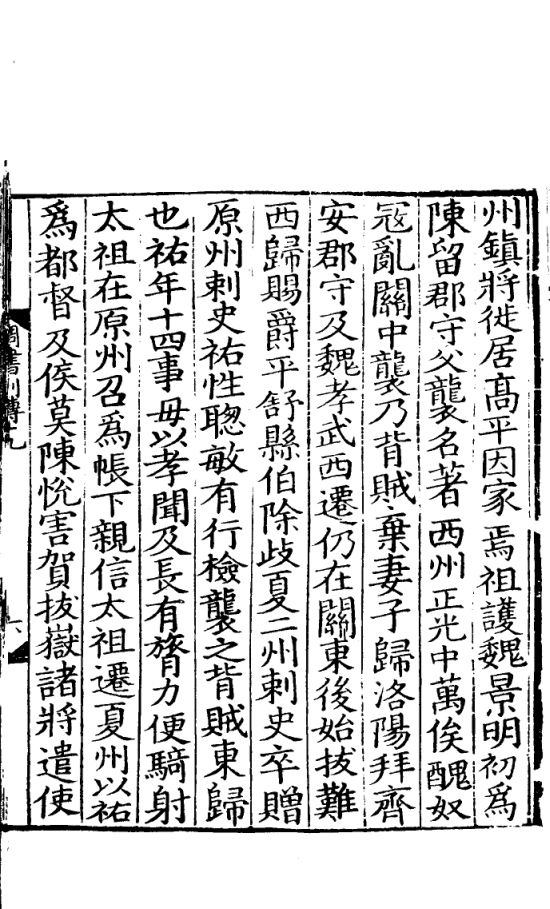 州鎮將徙居髙平因家焉祖護魏景明初爲
陳留郡守父襲名著西州正光中萬俟醜奴
冦亂關中襲乃背賊棄妻子歸洛陽拜齊
安郡守及魏孝武西遷仍在關東後始拔難
西歸賜爵平舒縣伯除歧夏二州刺史卒贈
原州刺史祐性聦敏有行檢襲之背賊東歸
也祐年十四事母以孝聞及長有膂力便騎射
太祖在原州召爲帳下親信太祖遷夏州以祐
爲都督及侯莫陳悅害賀拔嶽諸將遣使
周書列傳十九
六